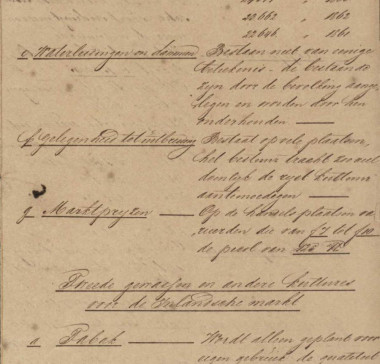 22.662 1862
22.646 1861
e Waterleidingen en dammen Bestaan niet van eenige
beteekenis. de bestaande
zijn door de bevolking aange
legen en worden door hen
onderhouden —
f Gelegenheid tot uitbreiding Bestaat op vele plaatsen,
het bestuur tracht zooveel
de rijst kultuur
aantemoedigen —
g Marktprijzen — Op de plaatsen va
rieerden die van f 7 tot f 10
de picol van 125 lb
Tweede gewassen en andere kultures
voor de Inlandsche markt
a Tabak — Wordt alleen geplant voor
eigen gebruik de